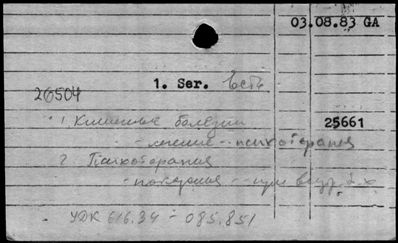 03.08.83 GA
1. Ser. Есть
26504
1 Кишечные болезни 25661
- лечение - психотерапия
2 Психотерапия
- показания - при
УДК 616.34 - 085.851